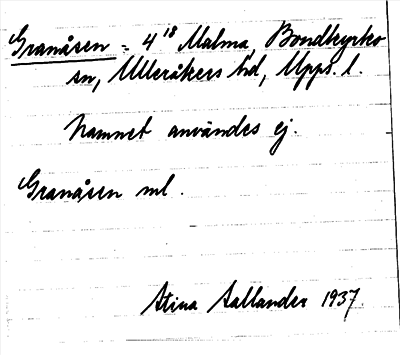 Granåsen = 4¹⁸ Malma, Bondkyrko
sn, Ulleråkers hd, Upps. l.
Namnet användes ej.
Granåsen ml.
Stina Sallander 1937.